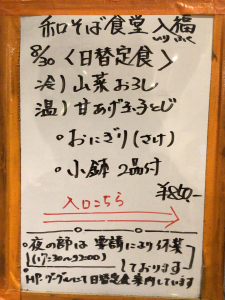 和そば食堂 入福
いり ふく
8/30 〈日替定食〉
冷) 山菜おろし
温) 甘あげ玉子とじ
・おにぎり(さけ)
・小鉢 2品付
入口こちら
・夜の部は 要請により休業
(17:30〜22:00)
しております
HP・グーグルにて日替定食案内しています